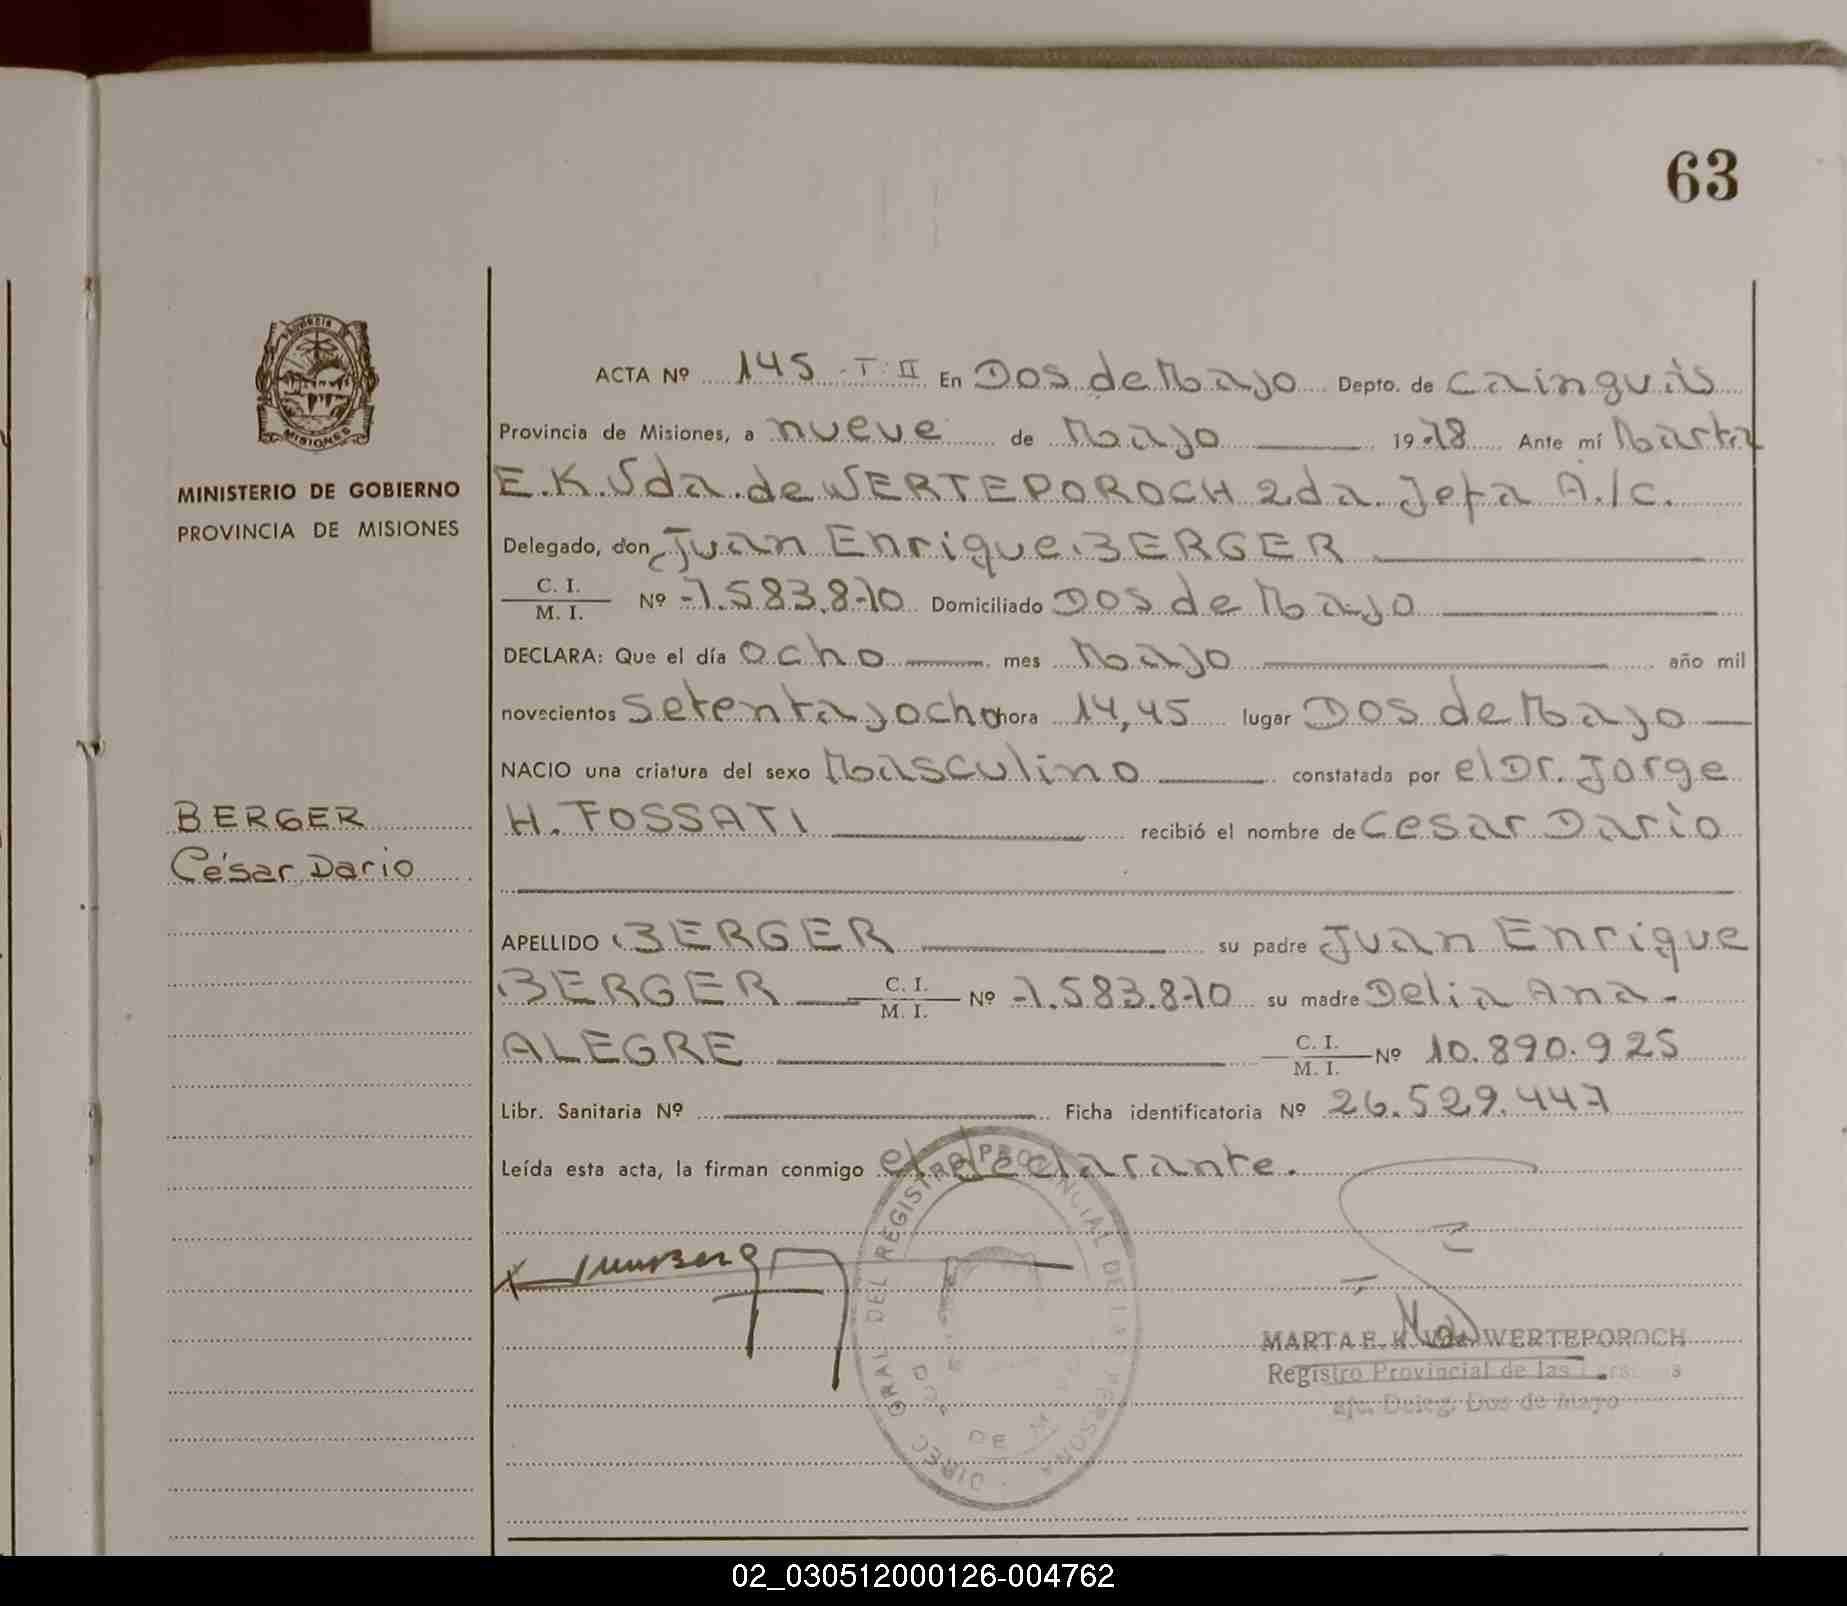 63
PROVINCIA
MISIONES
MINISTERIO DE GOBIERNO
PROVINCIA DE MISIONES
BERGER
César Dario
ACTA Nº 145 - T: II En Dos de Mayo Depto. de Cainguás
Provincia de Misiones, a nueve de Mayo 1978 Ante mí Marta
E.K. Vda. de WERTEPOROCH 2da. Jefa A./c.
Delegado, don Juan Enrique BERGER
C. I.
M. I. Nº 7.583.870 Domiciliado Dos de Mayo
DECLARA: Que el día ocho mes Mayo año mil
novecientos setenta y ocho hora 14,45 lugar Dos de Mayo
NACIO una criatura del sexo Masculino constatada por el Dr. Jorge
H. FOSSATI recibió el nombre de Cesar Darío
APELLIDO BERGER su padre Juan Enrique
BERGER C. I. M. I. Nº 7.583.870 su madre Delia Ana
ALEGRE C. I. M. I. Nº 10.890.925
Libr. Sanitaria Nº Ficha identificatoria Nº 26.529.447
Leída esta acta, la firman conmigo el declarante.
DIREC. GRAL DEL REGISTRO PROVINCIAL DE LAS PERSONAS
MARTA E. K. Vda. WERTEPOROCH
Registro Provincial de las
Deleg. Dos de Mayo
02_030512000126-004762